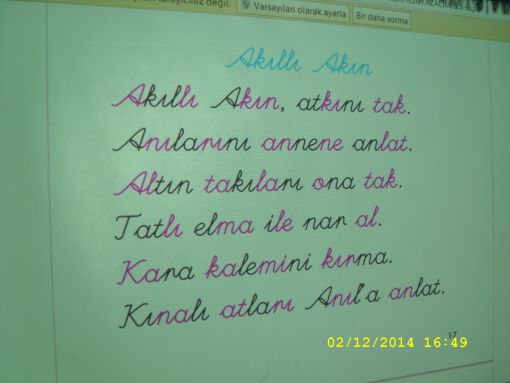 Varsayılan olarak ayarla
Bir daha sorma
Akıllı Akın
Akıllı Akın, atkını tak.
Anılarını annene anlat.
Altın takıları ona tak.
Tatlı elma ile nar al.
Kara kalemini kırma.
Kınalı atları Anıl'a anlat.
17
02/12/2014 16:49